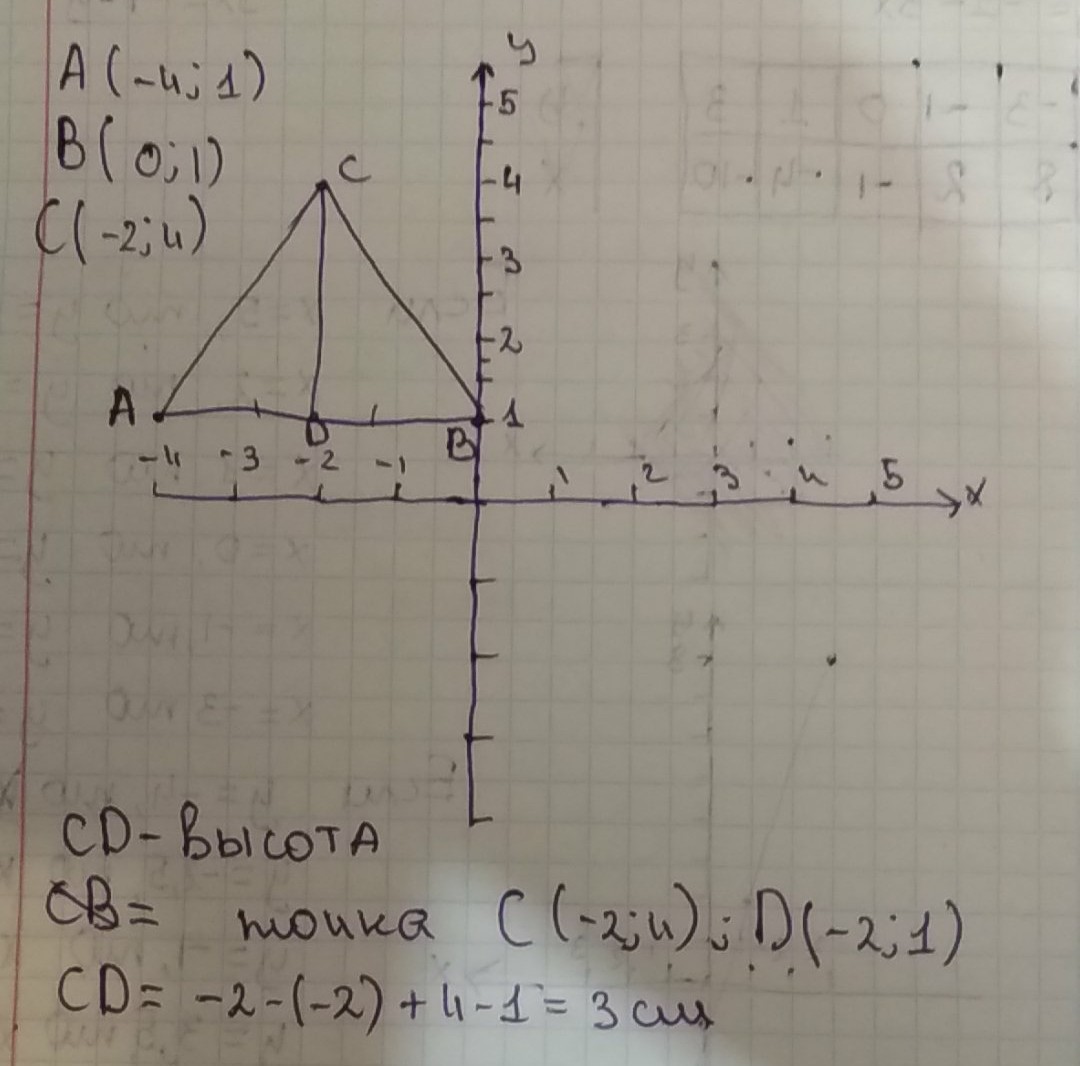 A(-4;1)
B(0;1)
C(-2;4)
y
5
4
3
2
1
C
A
D
B
-4 -3 -2 -1 1 2 3 4 5 x
CD-ВЫСОТА
CB= точка C(-2;4); D(-2;1)
CD= -2-(-2)+4-1= 3 см